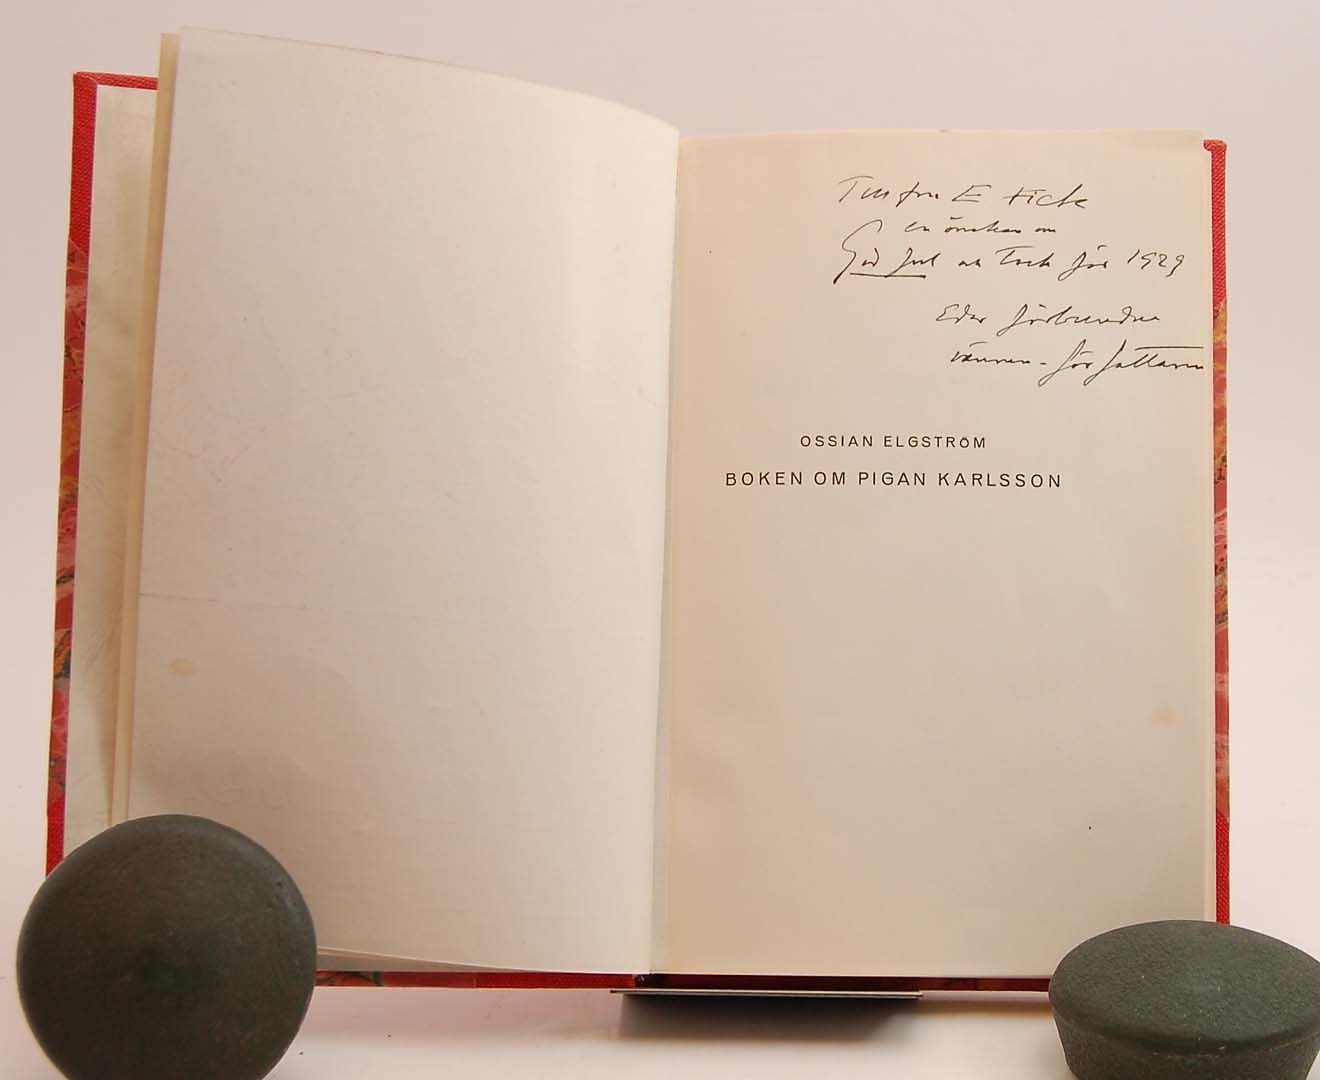 Till fru E Fick
en önskan om
God Jul och Tack för 1929
Eder förbundne
vännen - författaren
OSSIAN ELGSTRÖM
BOKEN OM PIGAN KARLSSON